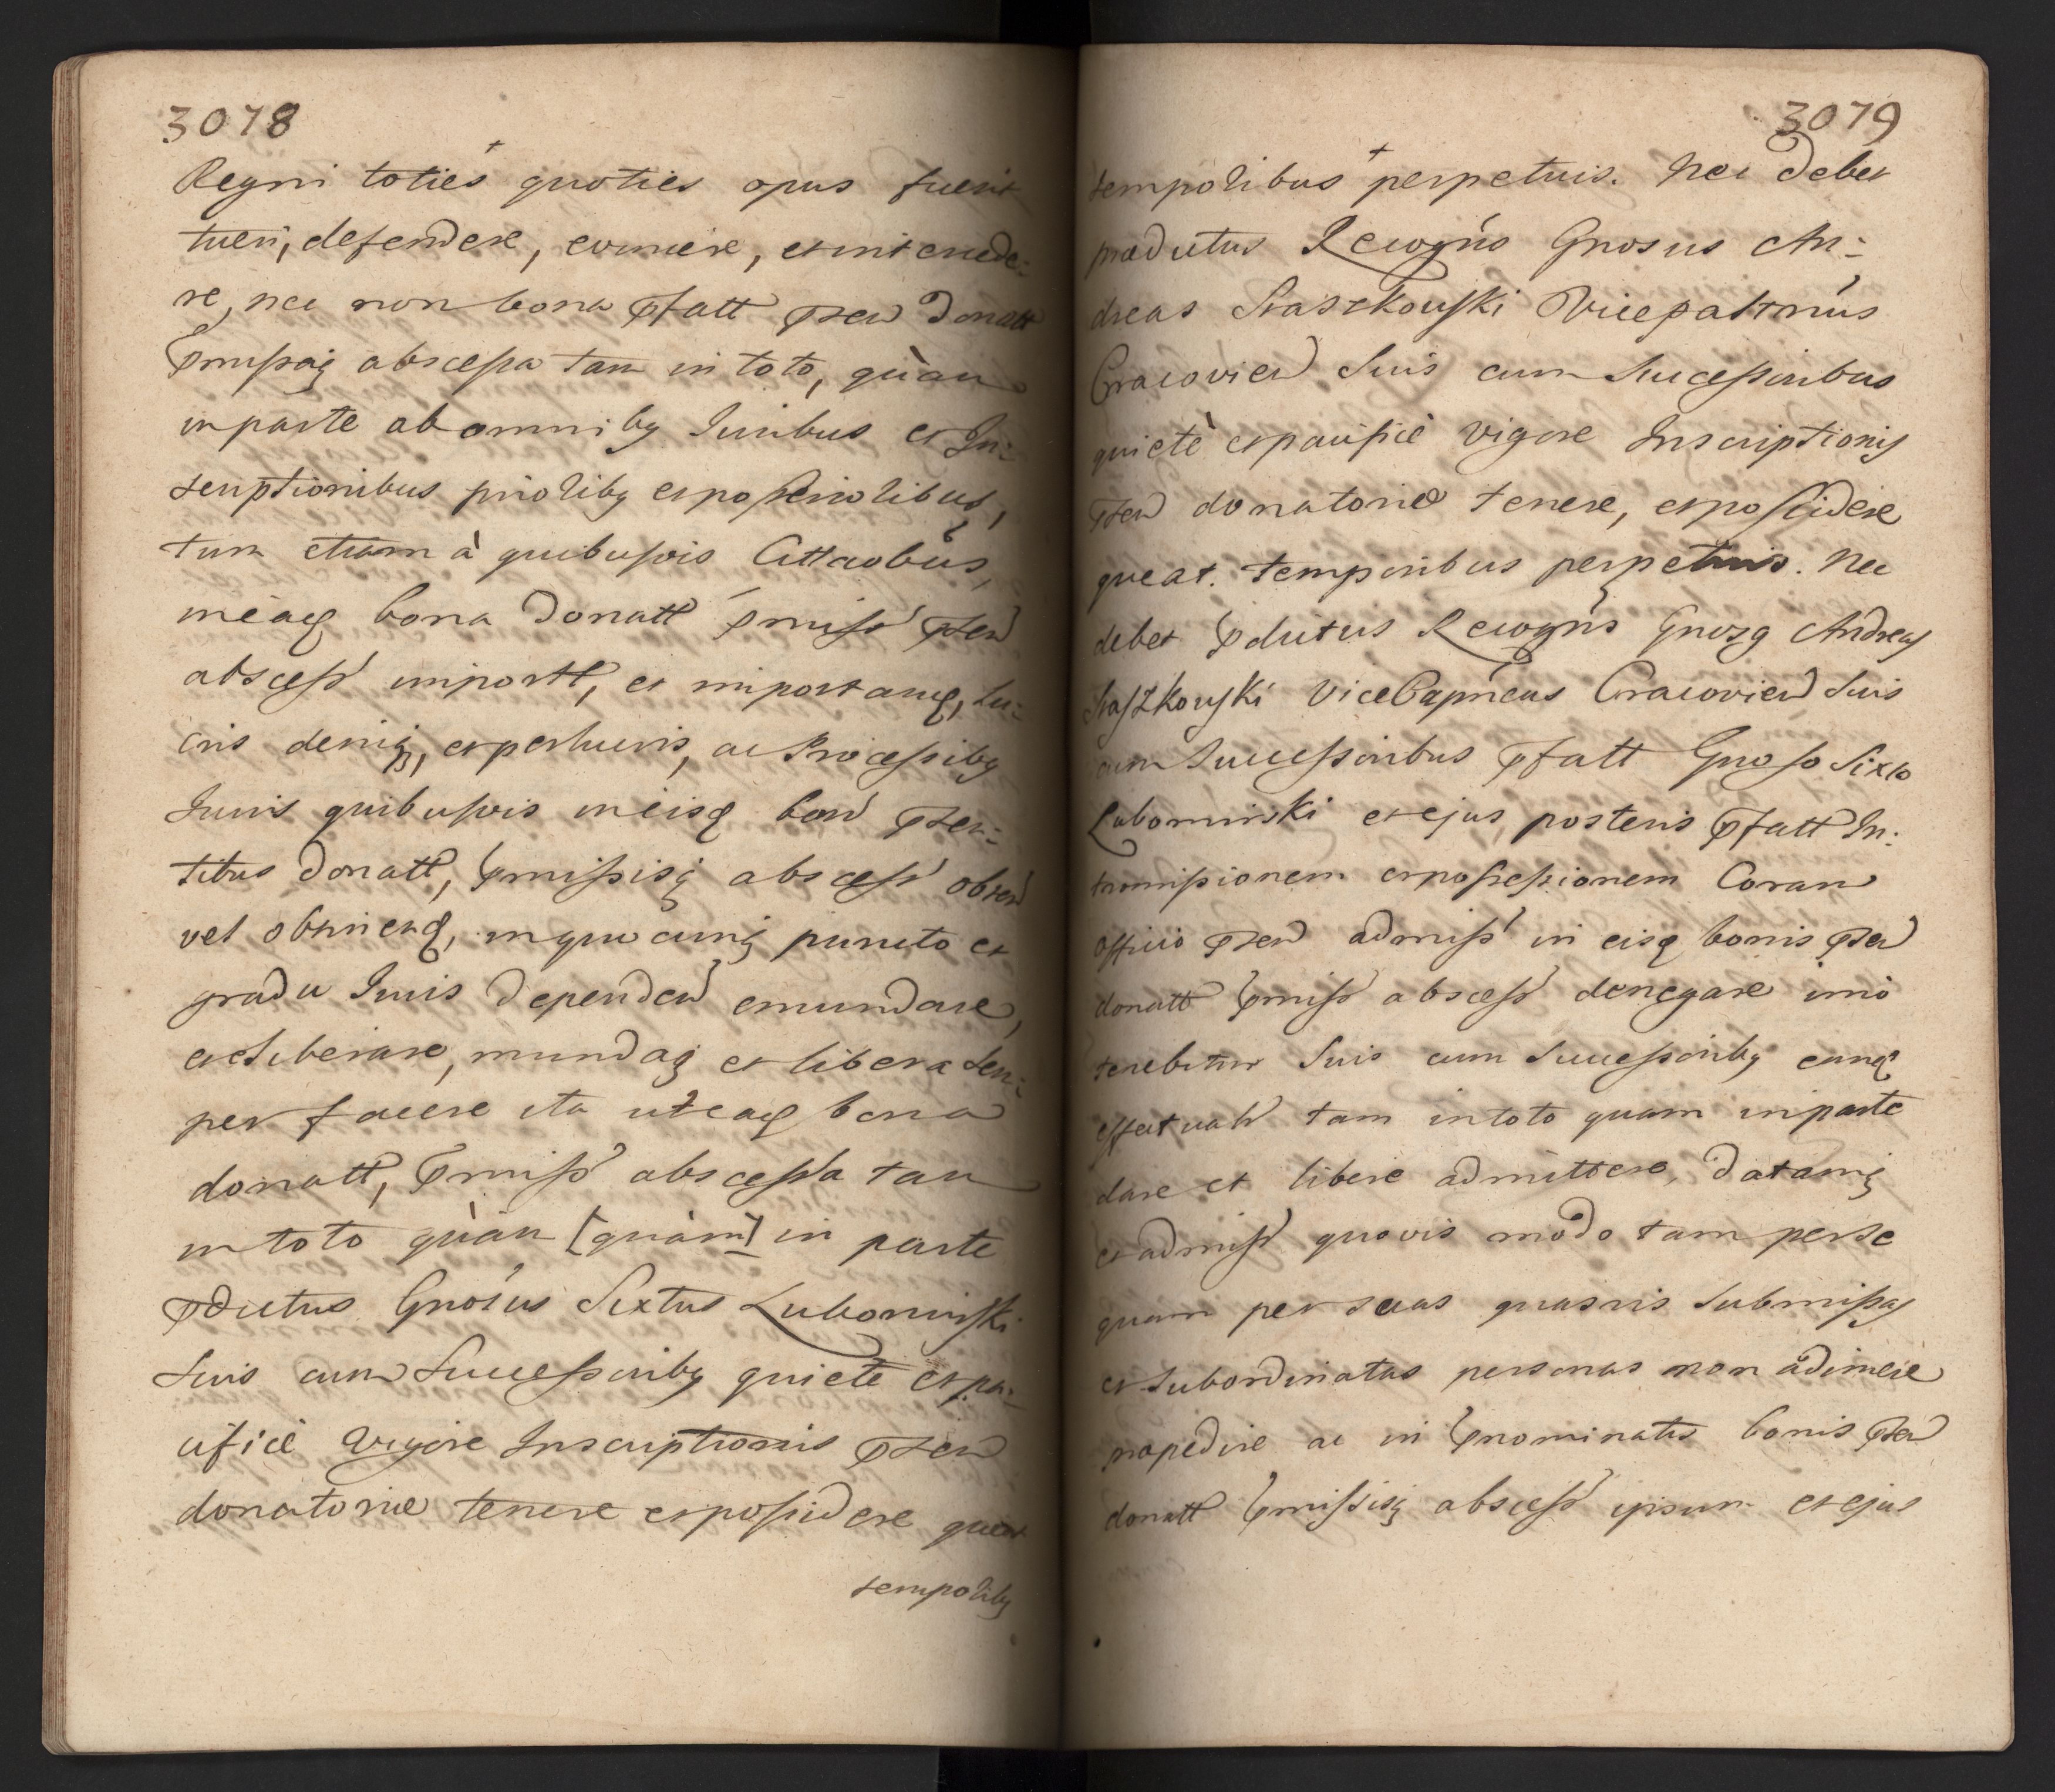 3078
Regni toties quoties opus fuerit
tueri, defendere, evincere, et intercede-
re, nec non bona pfatt psen donatt
pmissaq abscessa tam in toto, quàm
in parte ab omniby Juribus et In-
scriptionibus prioriby et posterioribus,
tum etiam à quibusvis Attaobus,
in eaq bona donatt pmiss psen
abscess importt, et importanq, lu-
cris deniq, et perlucris, ac Processiby
Juris quibusvis in eisq bon psen-
tibus donatt, pmissisq abscess obten
vel obtinenq, in quocunq puncto et
gradu Juris dependen emundare,
et liberare, mundaq et libera sem-
per facere ita ut eaq bona
donatt, pmiss abscessa tam
in toto quàm [quàm] in parte
pdictus Gnosus Sixtus Lubomirski
suis cum Successoriby quietè et pa-
cificè vigore Inscriptionis psen
donatoriae tenere et possidere queat
temporiby
3079
temporibus perpetuis. Nec debet
praedictus Recogns Gnosus An-
dreas Staszkowski Vicepaltnus
Cracovien suis cum Successoribus
quietè et pacificè vigore Inscriptionis
psen donatoriae tenere, et possidere
queat. temporibus perpetuis. Nec
debet pdictus Recogns Gnosg Andreas
Staszkowski ViceCapneus Cracovien suis
cum Successoribus pfatt Gnoso Sixto
Lubomirski et ejus posteris pfatt In-
tromissionem et possessionem Coram
Officio psen admiss in eisq bonis psen
donatt pmiss abscess denegare imò
tenebitur suis cum Successoriby eamq
effectualr tam in toto quam in parte
dare et libere admittere, datamq
et admiss quovis modo tam per se
quam per suas quasvis submissas
et subordinatas personas non adimere
praepedire ac in pnominatis bonis psen
donatt pmissisq abscess ipsum et ejus